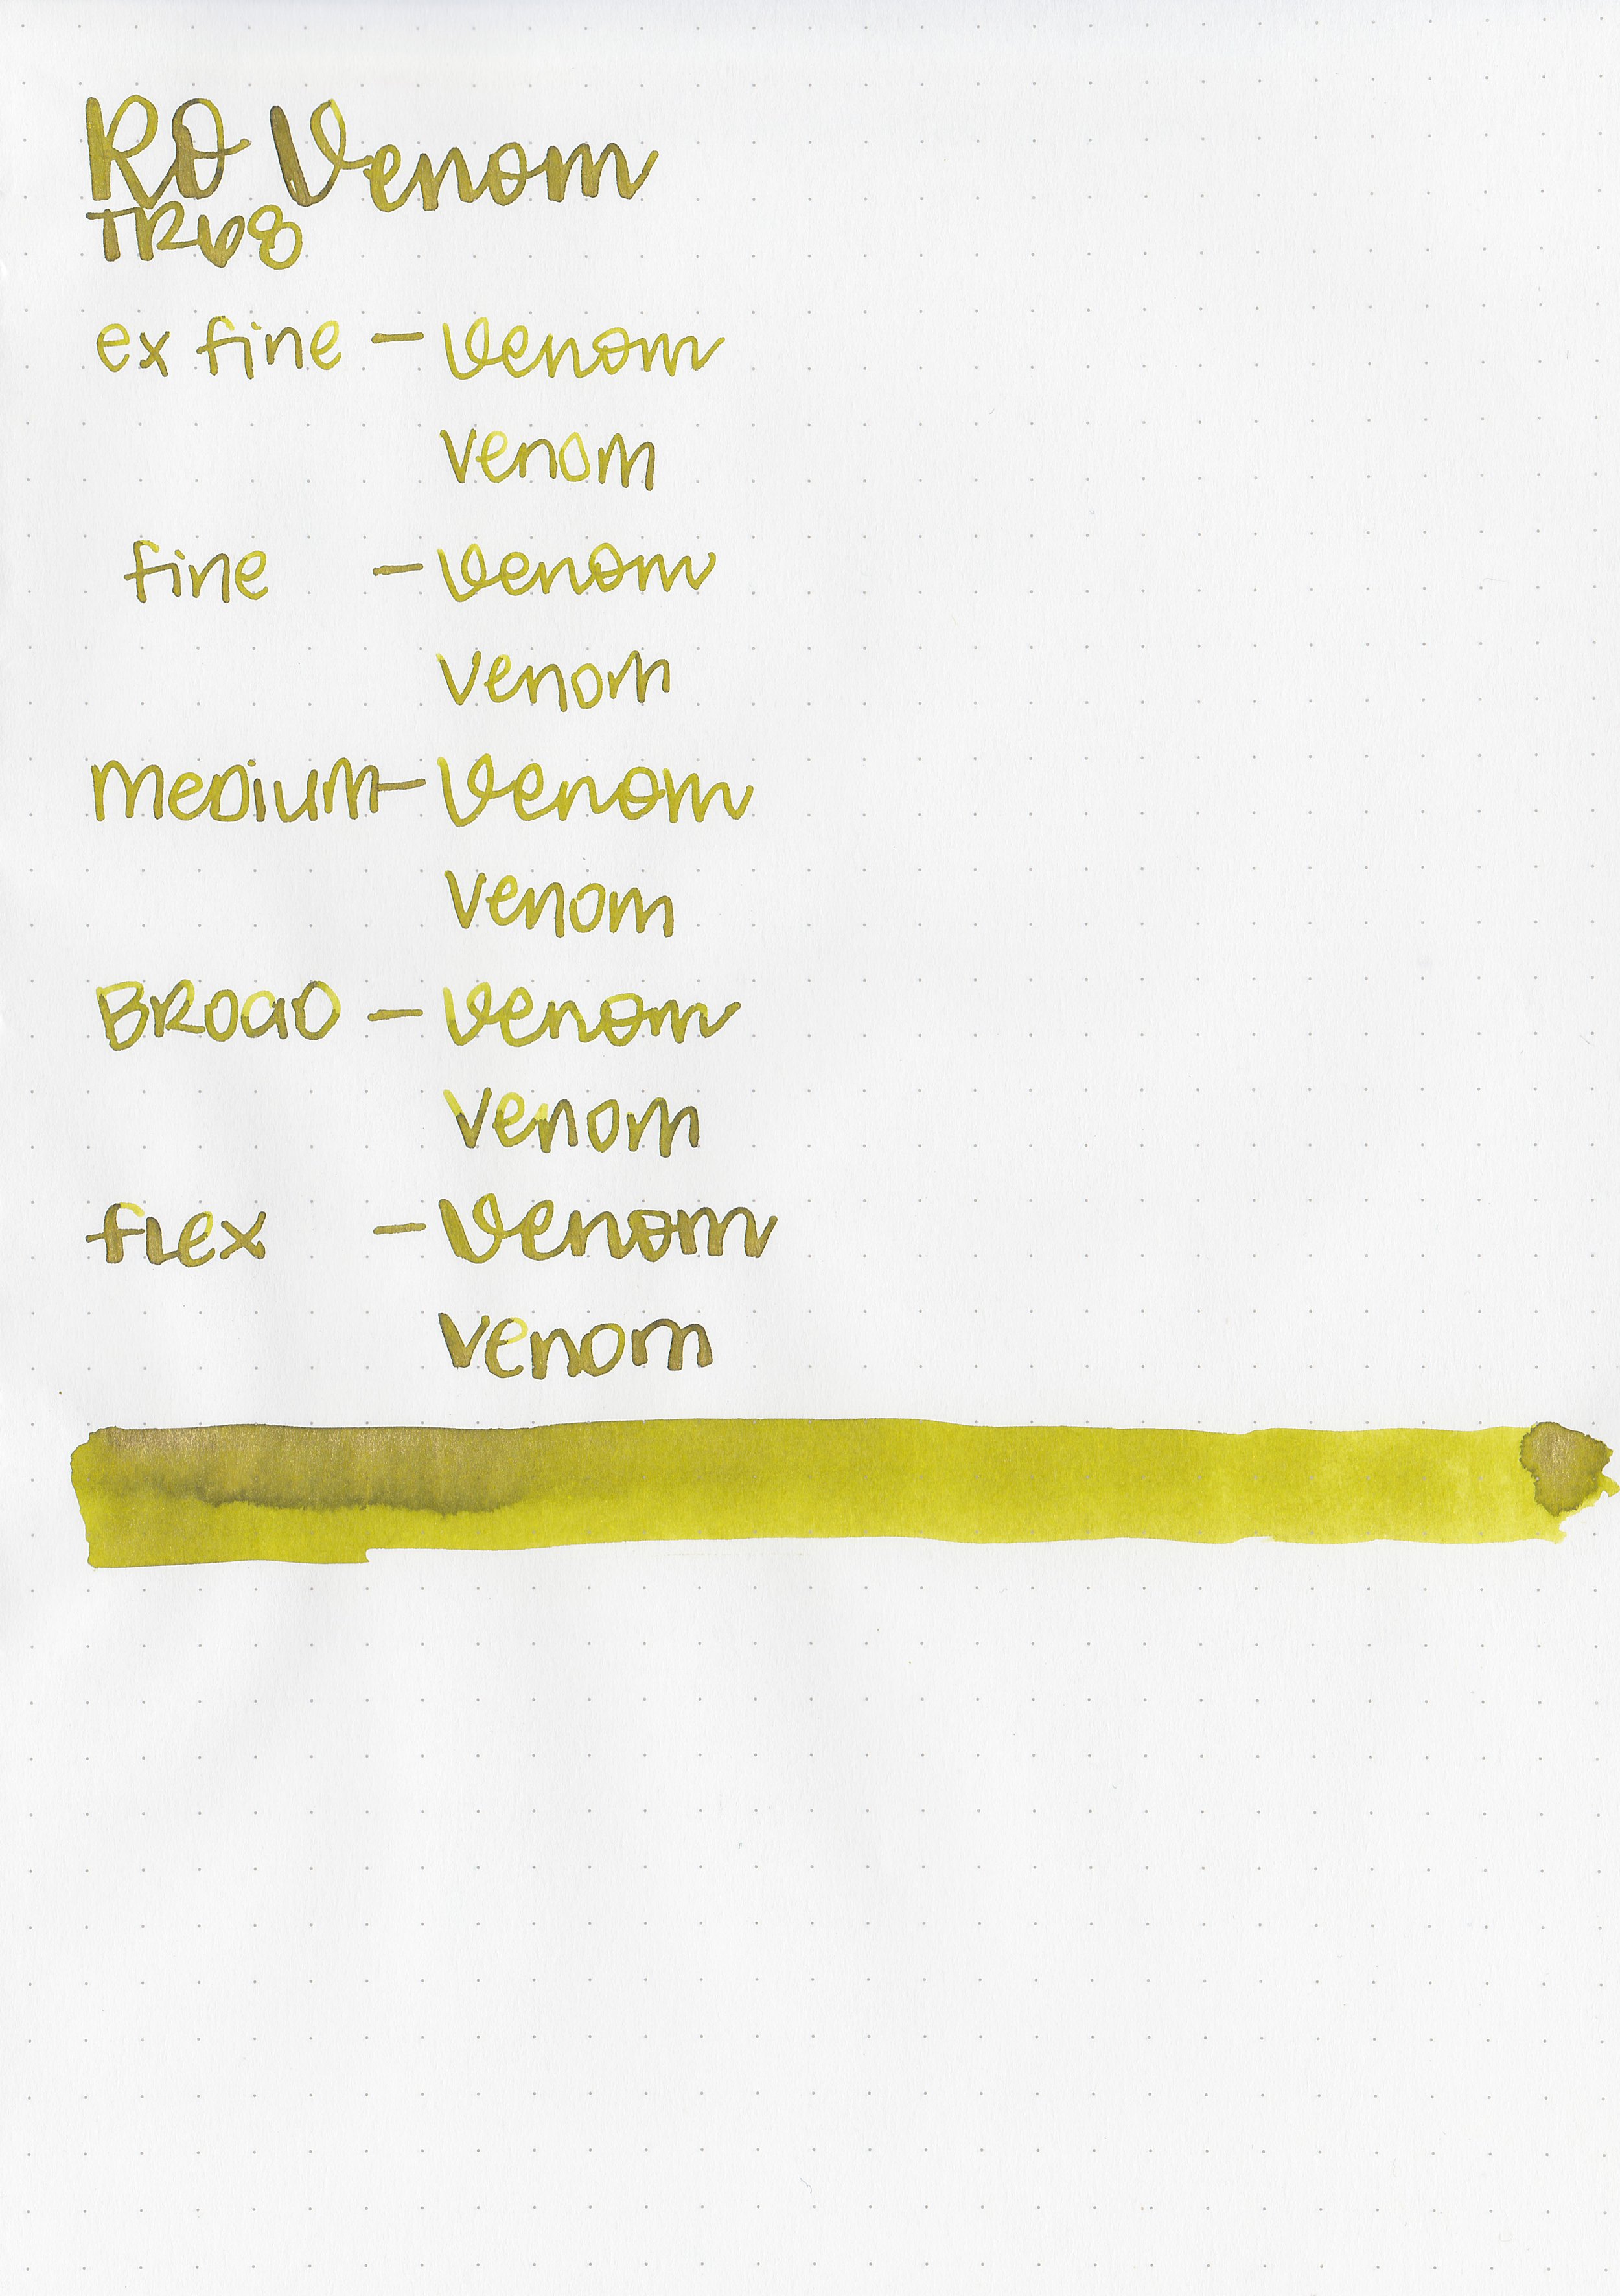 RO Venom
TR68
ex fine - Venom
venom
fine - Venom
venom
medium - Venom
venom
BROAD - Venom
venom
flex - Venom
venom